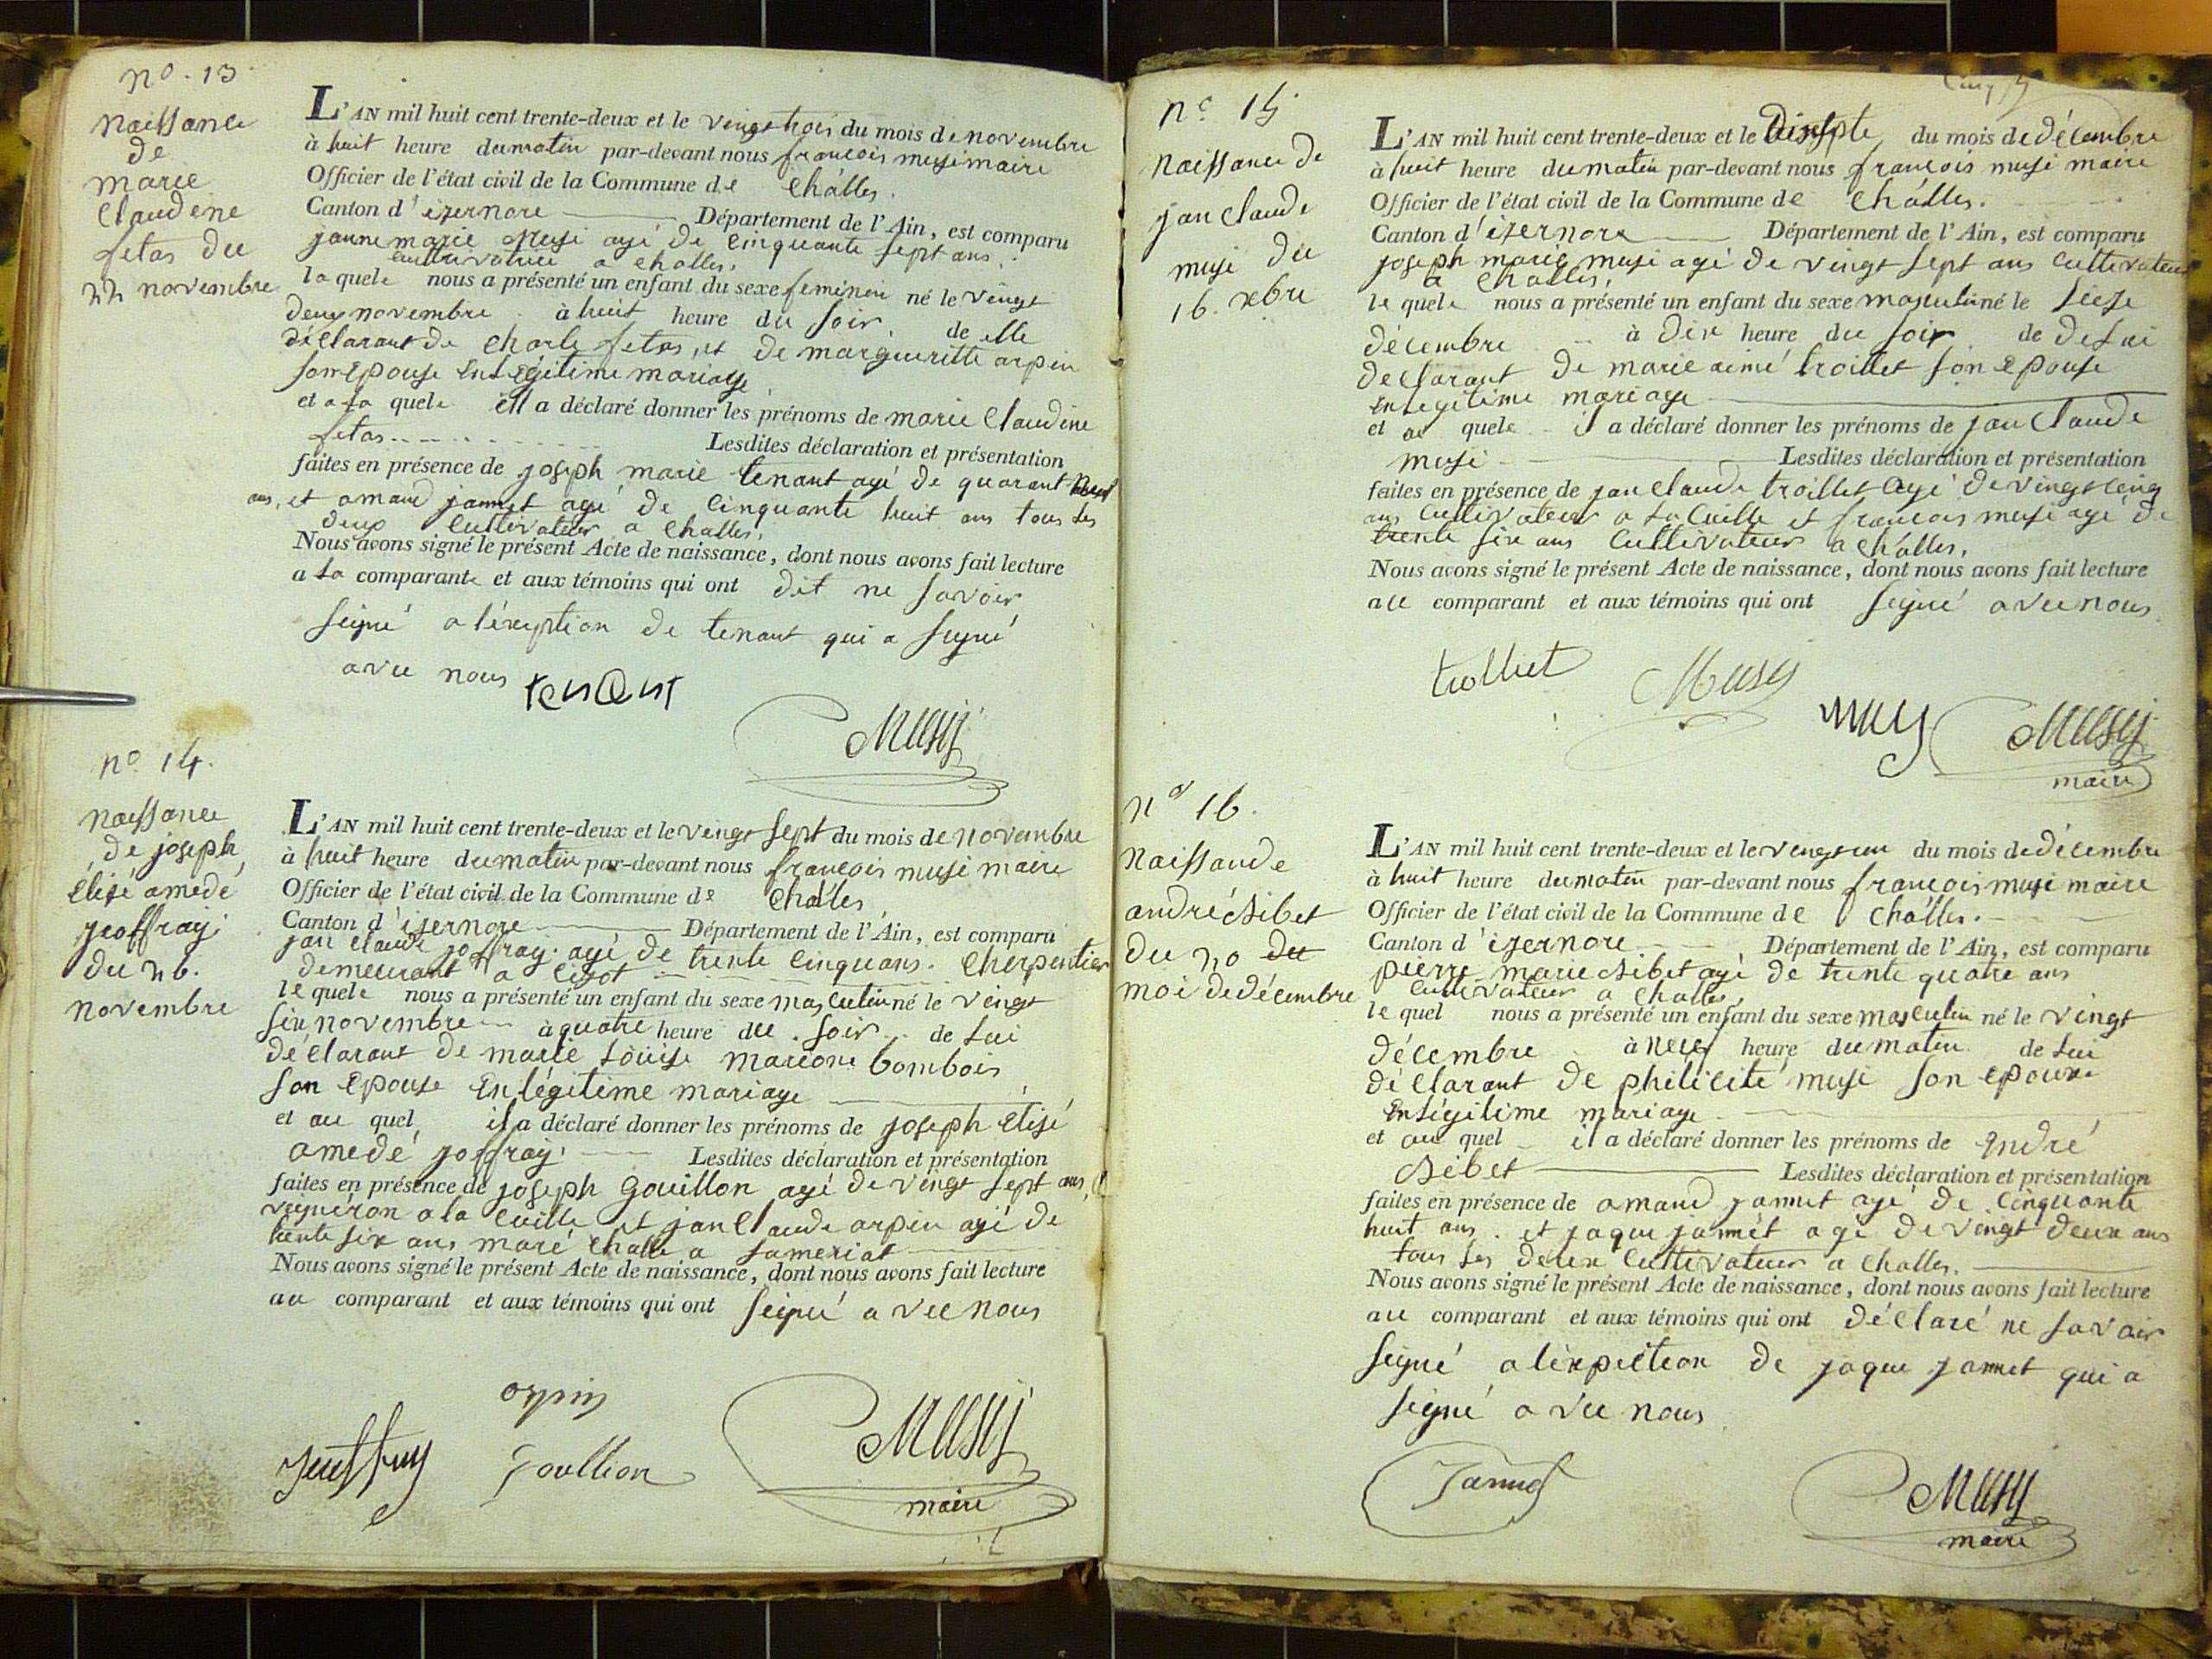 n° 13
naissance
de
marie
Claudene
fetas du
22 novembre
L'AN mil huit cent trente-deux et le vingt trois du mois de novembre
à huit heure du matin par-devant nous françois musi maire
Officier de l'état civil de la Commune de Challes.
Canton d'izernore Département de l'Ain, est comparu
janne marie Musi agé de cinquante sept ans
cultivatrice a challes,
laquele nous a présenté un enfant du sexe feminin né le vingt
deux novembre à huit heure du soir, de elle
déclarant de charle fetas, et de margueritte arpin
son Epouse En Légitime mariage
et a la quele ell a déclaré donner les prénoms de marie Claudine
fetas Lesdites déclaration et présentation
faites en présence de joseph marie tenant agé de quarant neuf
ans, et amand jannet agé de cinquante huit ans tous les
deux Cultivateur a Challes,
Nous avons signé le présent Acte de naissance, dont nous avons fait lecture
a la comparante et aux témoins qui ont dit ne savoir
signé a léxeption de tenant qui a signé
avec nous tenant
Musy
n° 14.
naissance
de joseph
Elisé amédé
jeoffray
du 26.
novembre
L'AN mil huit cent trente-deux et le vingt sept du mois de novembre
à huit heure du matin par-devant nous françois musi maire
Officier de l'état civil de la Commune de Challes
Canton d'izernore Département de l'Ain, est comparu
jan claude joffray agé de trente cinquans. Cherpentier
demeurant a
le quele nous a présenté un enfant du sexe masculin né le vingt
six novembre à quatre heure du soir de lui
déclarant de marie Louise marione bombois
son Epouse En légitime mariage
et au quel il a déclaré donner les prénoms de joseph Elisé
amédé joffray Lesdites déclaration et présentation
faites en présence de joseph Gouillon agé de vingt sept ans,
vigneron a la Cuille et jan Claude arpin agé de
trente six ans maré challe a Sameriat
Nous avons signé le présent Acte de naissance, dont nous avons fait lecture
au comparant et aux témoins qui ont signé avec nous
arpin
Jeuffray Goullion Musy
maire
n° 15
naissance de
jan claude
musi du
16. xbre
L'AN mil huit cent trente-deux et le Disepte du mois de décembre
à huit heure du matin par-devant nous françois musi maire
Officier de l'état civil de la Commune de Challes.
Canton d'izernore Département de l'Ain, est comparu
joseph marie musi agé de vingt sept ans cultivateur
a Challes,
le quele nous a présenté un enfant du sexe masculin né le seize
décembre à dix heure du soir de de lui
declarant de marie aimé troillet son Epouse
en légitime mariage
et au quele il a déclaré donner les prénoms de jan Claude
musi Lesdites déclaration et présentation
faites en présence de jan claude troillet agé de vingt cinq
ans cultivateur a la Cuille et françois musi agé de
trente six ans Cultivateur a challes,
Nous avons signé le présent Acte de naissance, dont nous avons fait lecture
au comparant et aux témoins qui ont signé avec nous
trolliet Musy
musy Musy
maire
n° 16.
naissande
andré sibet
du 20 du
moi de décembre
L'AN mil huit cent trente-deux et le vengt un du mois de décembre
à huit heure du matin par-devant nous françois musi maire
Officier de l'état civil de la Commune de Challes.
Canton d'izernore Département de l'Ain, est comparu
pierre marie sibet agé de trente quatre ans
cultivateur a challes,
le quel nous a présenté un enfant du sexe masculin né le vingt
décembre à neuf heure du matin de lui
déclarant de philicité musi son epouxe
En Légitime mariage
et au quel il a déclaré donner les prénoms de André
sibet Lesdites déclaration et présentation
faites en présence de amand jannet agé de cinquante
huit ans. et jaque jannet agé de vingt deux ans
tous les deux Cultivateur a Challes.
Nous avons signé le présent Acte de naissance, dont nous avons fait lecture
au comparant et aux témoins qui ont déclaré ne savoir
signé a léxpiction de jaque jannet qui a
signé avec nous
Jannet Musy
maire